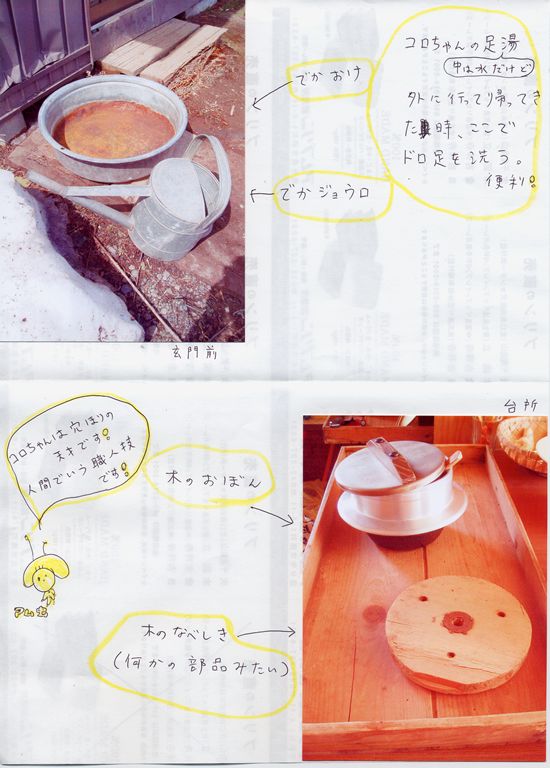 コロちゃんの足湯
中は水だけど
外に行って帰ってき
た時、ここで
ドロ足を洗う。
便利!
でかおけ
でかジョウロ
玄門前
台所
コロちゃんは穴ほりの
天才です!
人間でいう職人技
です!
木のおぼん
木のなべしき
(何かの部品みたい)